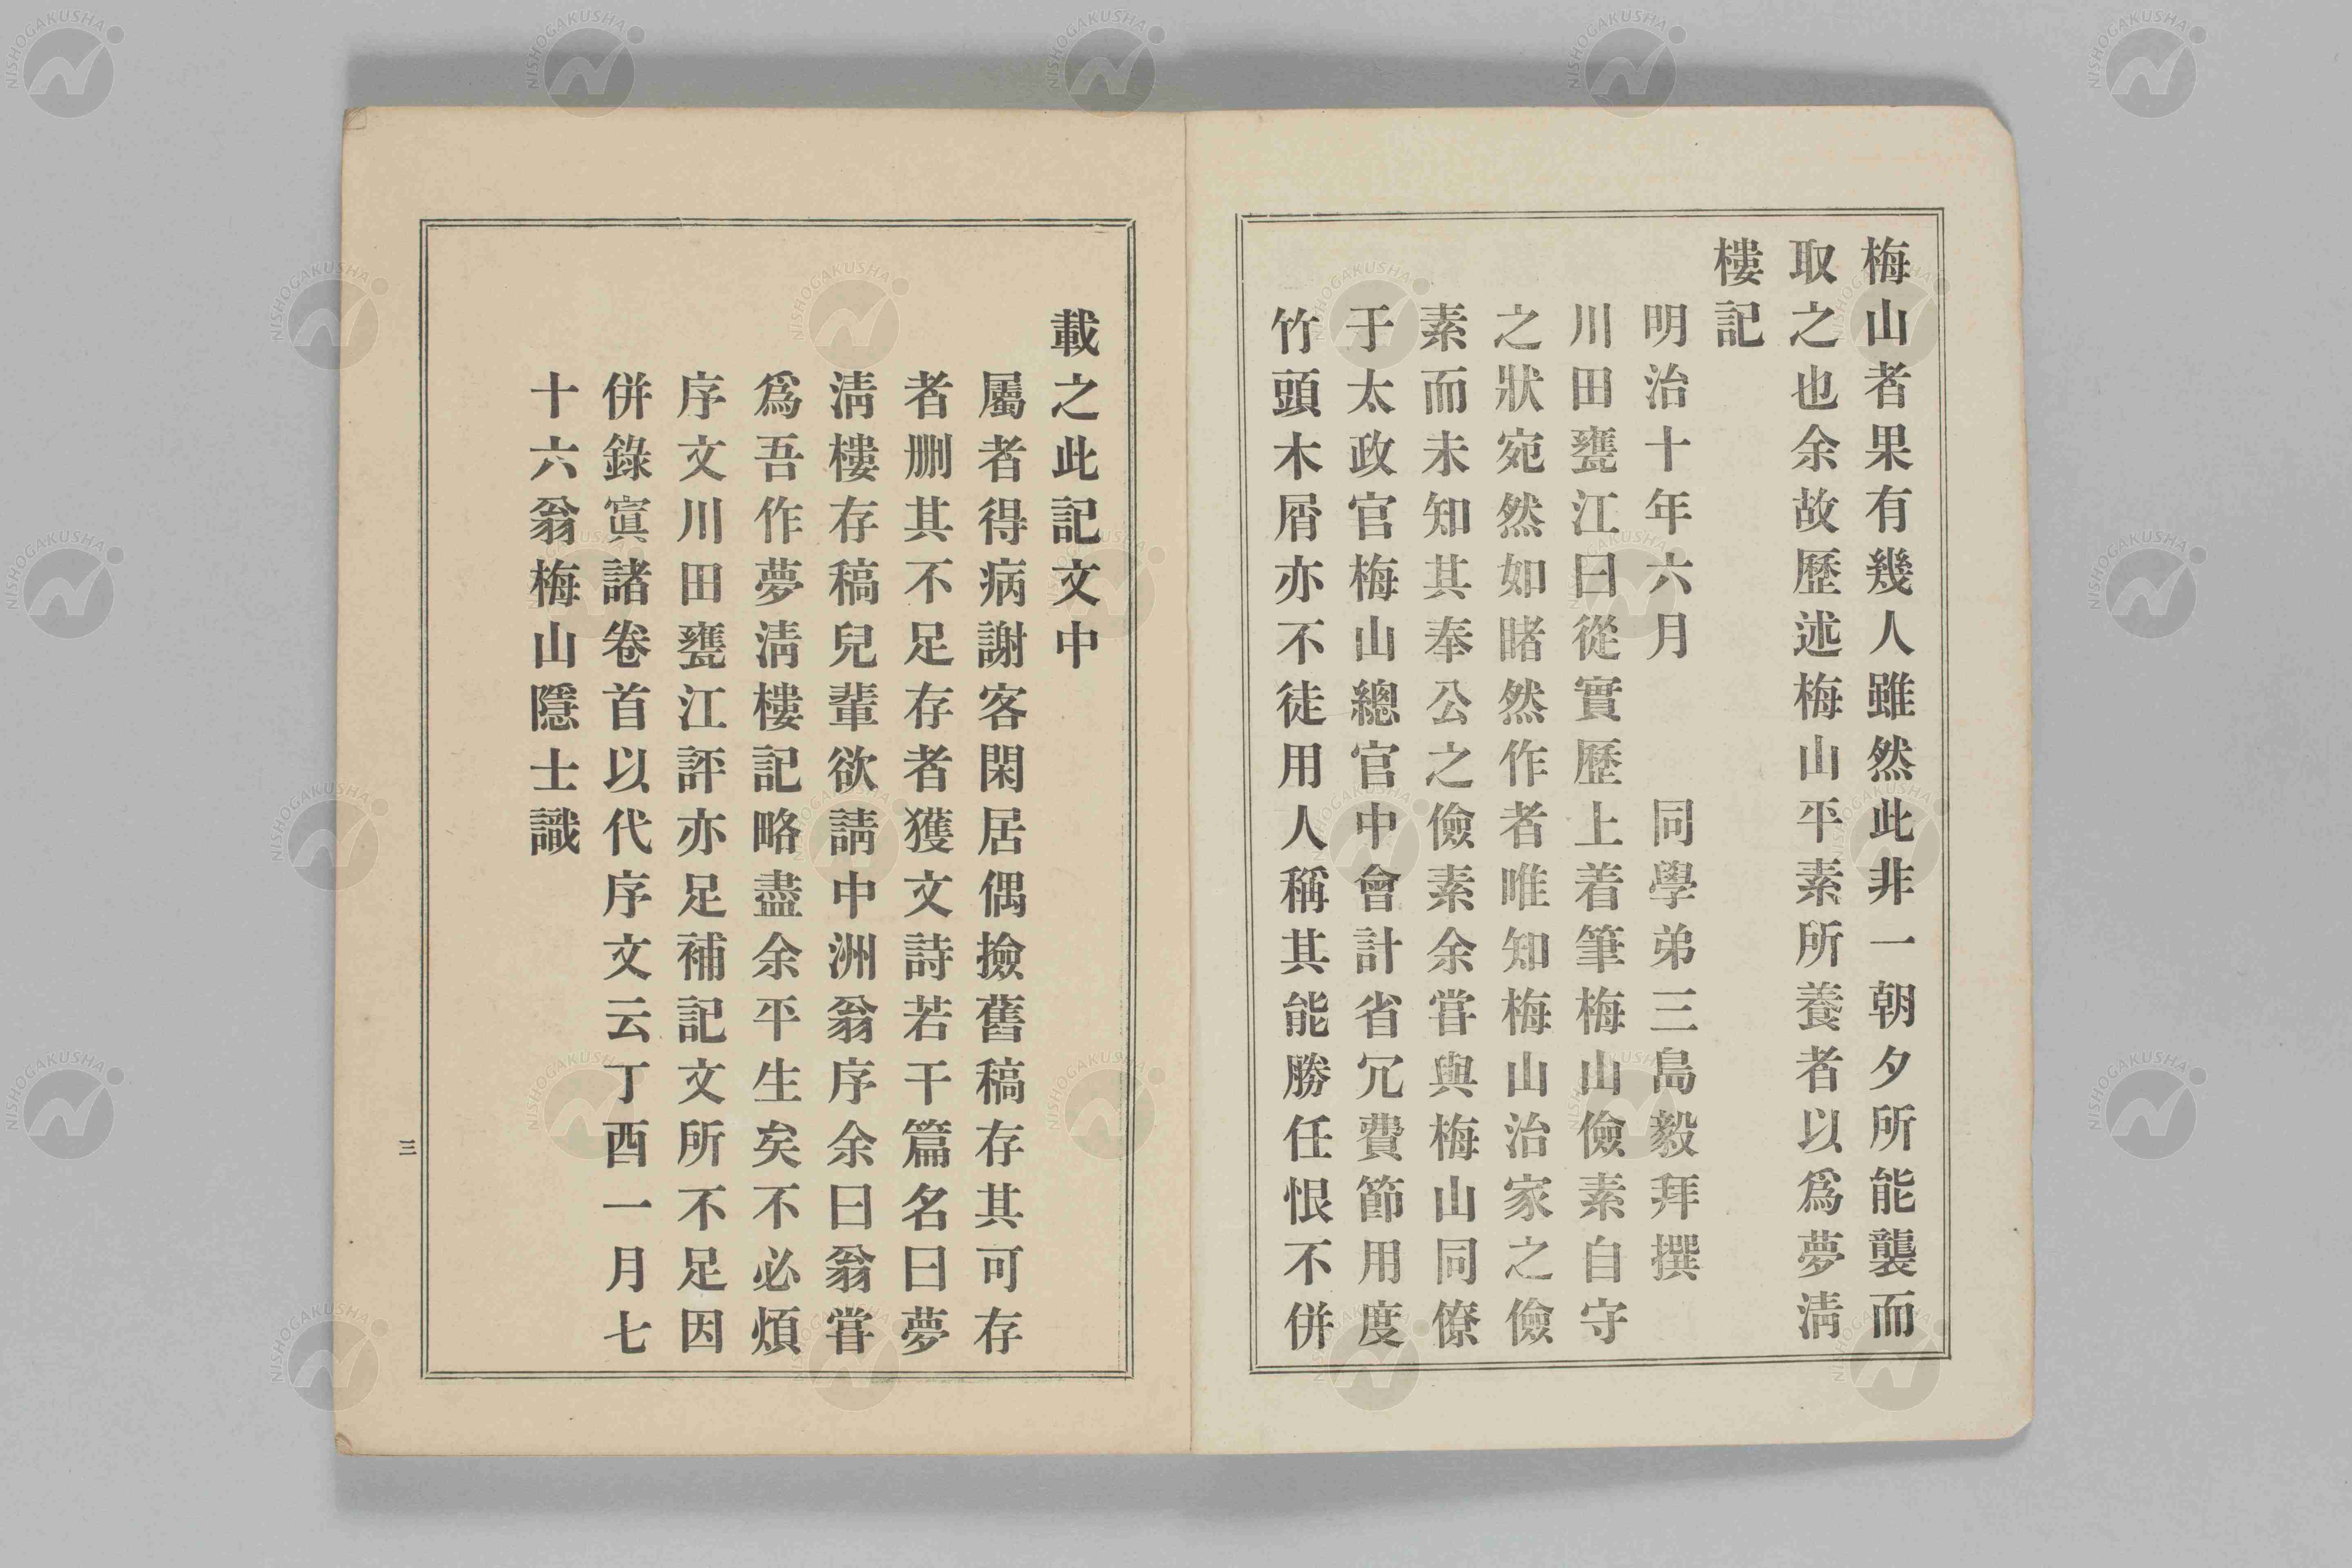 梅山者果有幾人雖然此非一朝夕所能襲而
取之也余故歷述梅山平素所養者以爲夢淸
樓記
明治十年六月　同學弟三島毅拜撰
川田甕江曰從實歷上着筆梅山儉素自守
之狀宛然如睹然作者唯知梅山治家之儉
素而未知其奉公之儉素余嘗與梅山同僚
于太政官梅山總官中會計省冗費節用度
竹頭木屑亦不徒用人稱其能勝任恨不併
載之此記文中
屬者得病謝客閑居偶撿舊稿存其可存
者刪其不足存者獲文詩若干篇名曰夢
淸樓存稿兒輩欲請中洲翁序余曰翁嘗
爲吾作夢淸樓記略盡余平生矣不必煩
序文川田甕江評亦足補記文所不足因
併錄寘諸卷首以代序文云丁酉一月七
十六翁梅山隱士識
三
NISHOGAKUSHA